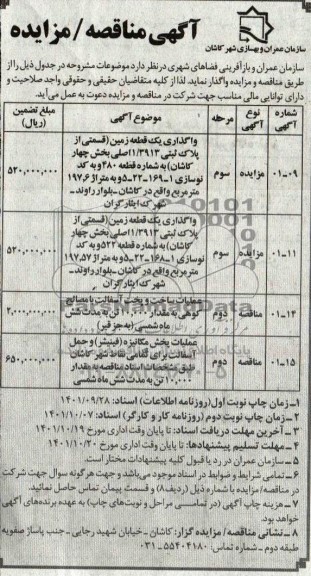 آگهی مناقصه/مزایده
سازمان عمران و بهسازی شهر کاشان
سازمان عمران و بازآفرینی فضاهای شهری در نظر دارد موضوعات مشروحه در جدول ذیل را از
طریق مناقصه و مزایده واگذار نماید. لذا از کلیه متقاضیان حقیقی و حقوقی واجد صلاحیت و
دارای توانایی مالی مناسب جهت شرکت در مناقصه و مزایده دعوت به عمل می‌آید.
شماره آگهی | نوع آگهی | مرحله | موضوع آگهی | مبلغ تضمین (ریال)
۰۱-۰۹ | مزایده | سوم | واگذاری یک قطعه زمین (قسمتی از
پلاک ثبتی ۱/۳۹۱۳ اصلی بخش چهار
کاشان) به شماره قطعه ۲۸۰ و به کد
نوسازی ۱-۱۶۹-۲۲-۵ و به متراژ ۱۹۷,۶
متر مربع واقع در کاشان-بلوار راوند-
شهرک ایثارگران | ۵۲۰,۰۰۰,۰۰۰
۰۱-۱۱ | مزایده | سوم | واگذاری یک قطعه زمین (قسمتی از
پلاک ثبتی ۱/۳۹۱۳ اصلی بخش چهار
کاشان) به شماره قطعه ۵۲۲ و به کد
نوسازی ۱-۱۶۸-۲۲-۵ و به متراژ ۱۹۷,۵۷
متر مربع واقع در کاشان-بلوار راوند-
شهرک ایثارگران | ۵۲۰,۰۰۰,۰۰۰
۰۱-۱۴ | مناقصه | دوم | عملیات ساخت و پخت آسفالت با مصالح
کوهی به مقدار ۱۰,۰۰۰ تن به مدت شش
ماه شمسی (به جز قیر) | ۲,۰۰۰,۰۰۰,۰۰۰
۰۱-۱۵ | مناقصه | دوم | عملیات پخش مکانیزه (فینیشر) و حمل
آسفالت برای تمامی نقاط شهر کاشان
طبق مشخصات اسناد مناقصه به مقدار
۱۰,۰۰۰ تن به مدت شش ماه شمسی | ۶۵۰,۰۰۰,۰۰۰
۱_ زمان چاپ نوبت اول (روزنامه اطلاعات) اسناد: ۱۴۰۱/۰۹/۲۸
۲_ زمان چاپ نوبت دوم (روزنامه کار و کارگر) اسناد: ۱۴۰۱/۱۰/۰۷
۳_ آخرین مهلت دریافت اسناد: تا پایان وقت اداری مورخ ۱۴۰۱/۱۰/۱۹
۴_ مهلت تسلیم پیشنهادها: تا پایان وقت اداری مورخ ۱۴۰۱/۱۰/۲۰
۵_ سازمان عمران در رد یا قبول کلیه پیشنهادات مختار است.
۶_ تمامی شرایط و ضوابط در اسناد موجود می‌باشد و جهت هرگونه سوال جهت شرکت
در مناقصه/مزایده با شماره ذیل (ردیف۸) و قسمت پیمان تماس حاصل نمائید.
۷_ هزینه چاپ آگهی (در تمامی مراحل و نوبت‌های چاپ) به عهده برنده‌های آگهی
خواهد بود.
۸_ نشانی مناقصه/مزایده گزار: کاشان - خیابان شهید رجایی - جنب پاساژ صفویه
طبقه دوم - شماره تماس: ۵۵۴۰۴۱۸۰-۰۳۱